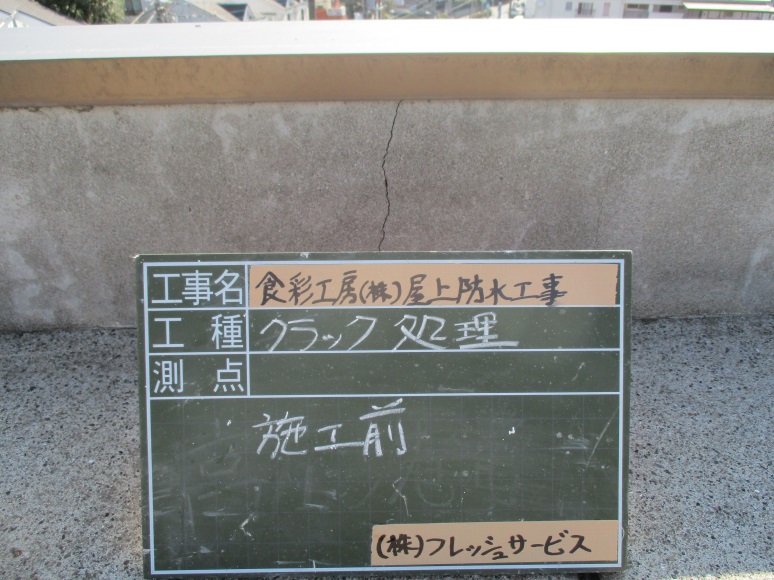 工事名 食彩工房(株)屋上防水工事
工種 クラック処理
測点
施工前
(株)フレッシュサービス